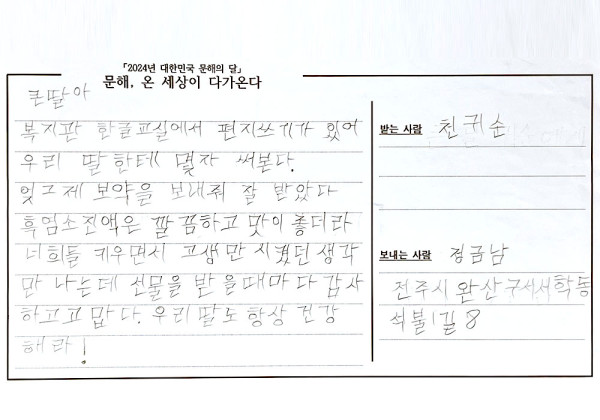 「2024년 대한민국 문해의 달」
문해, 온 세상이 다가온다
큰딸아
복지관 한글교실에서 편지쓰기가 있어
우리 딸한테 몇자 써본다.
엊그제 보약을 보내줘 잘 받았다
흑임소진액은 깔끔하고 맛이 좋더라
너희들 키우면서 고생만 시켰던 생각
만 나는데 선물을 받을때마다 감사
하고고맙다. 우리딸도 항상 건강
해라!
받는 사람 천귀순
보내는 사람 경금남
전주시 완산구서서학동
석불1길 8